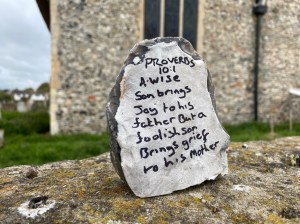 PROVERBS
10:1
A. wise
Son brings
Joy to his
father But a
foolish son
Brings grief
to his Mother